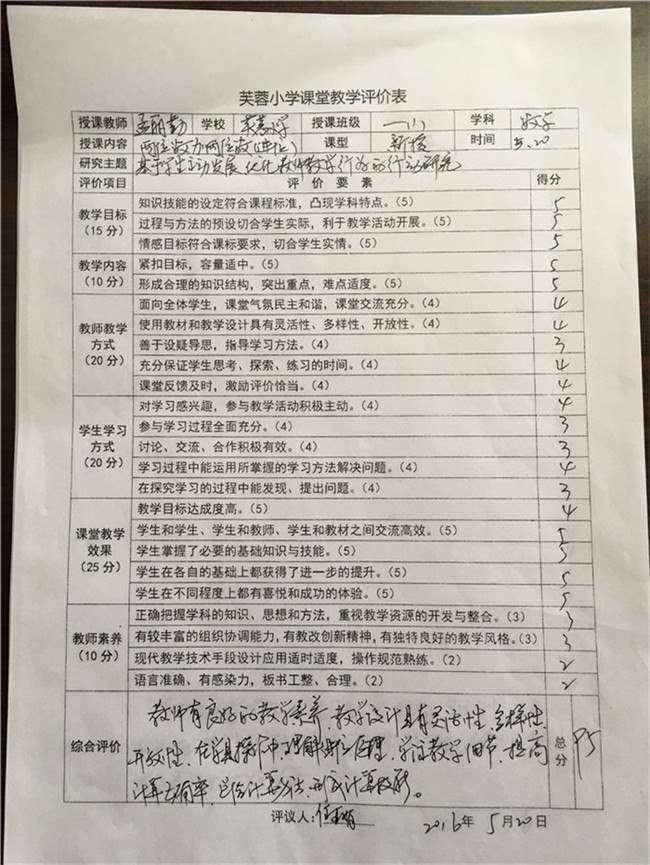 芙蓉小学课堂教学评价表
授课教师 孟丽勤 学校 芙蓉小学 授课班级 一(1) 学科 数学
授课内容 两位数加两位数(进位) 课型 新授 时间 5.20
研究主题 基于学生主动发展优化教师教学行为的行动研究
评价项目 评价要素 得分
教学目标(15分) 知识技能的设定符合课程标准,凸现学科特点。(5) 5
过程与方法的预设切合学生实际,利于教学活动开展。(5) 5
情感目标符合课标要求,切合学生实情。(5) 5
教学内容(10分) 紧扣目标,容量适中。(5) 5
形成合理的知识结构,突出重点,难点适度。(5) 5
教师教学方式(20分) 面向全体学生,课堂气氛民主和谐,课堂交流充分。(4) 4
使用教材和教学设计具有灵活性、多样性、开放性。(4) 4
善于设疑导思,指导学习方法。(4) 3
充分保证学生思考、探索、练习的时间。(4) 4
课堂反馈及时,激励评价恰当。(4) 4
学生学习方式(20分) 对学习感兴趣,参与教学活动积极主动。(4) 4
参与学习过程全面充分。(4) 3
讨论、交流、合作积极有效。(4) 3
学习过程中能运用所掌握的学习方法解决问题。(4) 4
在探究学习的过程中能发现、提出问题。(4) 3
课堂教学效果(25分) 教学目标达成度高。(5) 4
学生和学生、学生和教师、学生和教材之间交流高效。(5) 5
学生掌握了必要的基础知识与技能。(5) 5
学生在各自的基础上都获得了进一步的提升。(5) 5
学生在不同程度上都有喜悦和成功的体验。(5) 5
教师素养(10分) 正确把握学科的知识、思想和方法,重视教学资源的开发与整合。(3) 3
有较丰富的组织协调能力,有教改创新精神,有独特良好的教学风格。(3) 3
现代教学技术手段设计应用适时适度,操作规范熟练。(2) 2
语言准确、有感染力,板书工整、合理。(2) 2
综合评价 教师有良好的教学素养,教学设计具有灵活性、多样性、
开放性。在学具操作中,理解算理,关注教学细节,提高
计算正确率,总结计算方法,形成计算技能。
总分 95
评议人: 2016年5月20日